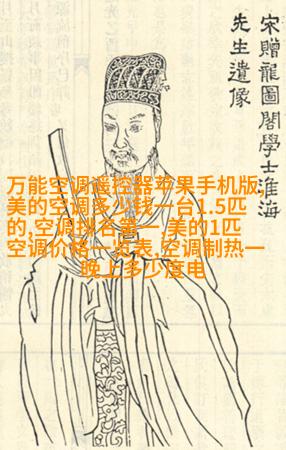 宋贈龍圖閣學士淮海
先生遺像
万能空调遥控器苹果手机版,
美的空调多少钱一台1.5匹
的,空调排名第一,美的1匹
空调价格一览表,空调制热一
晚上多少度电